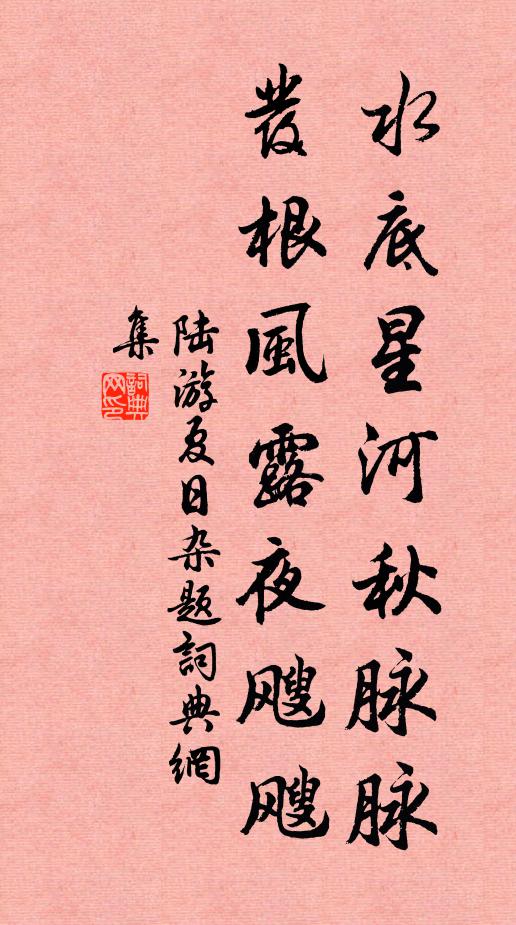 水底星河秋脉脉
發根風露夜飕飕
陆游夏日杂题詞典網
集
詞典网印